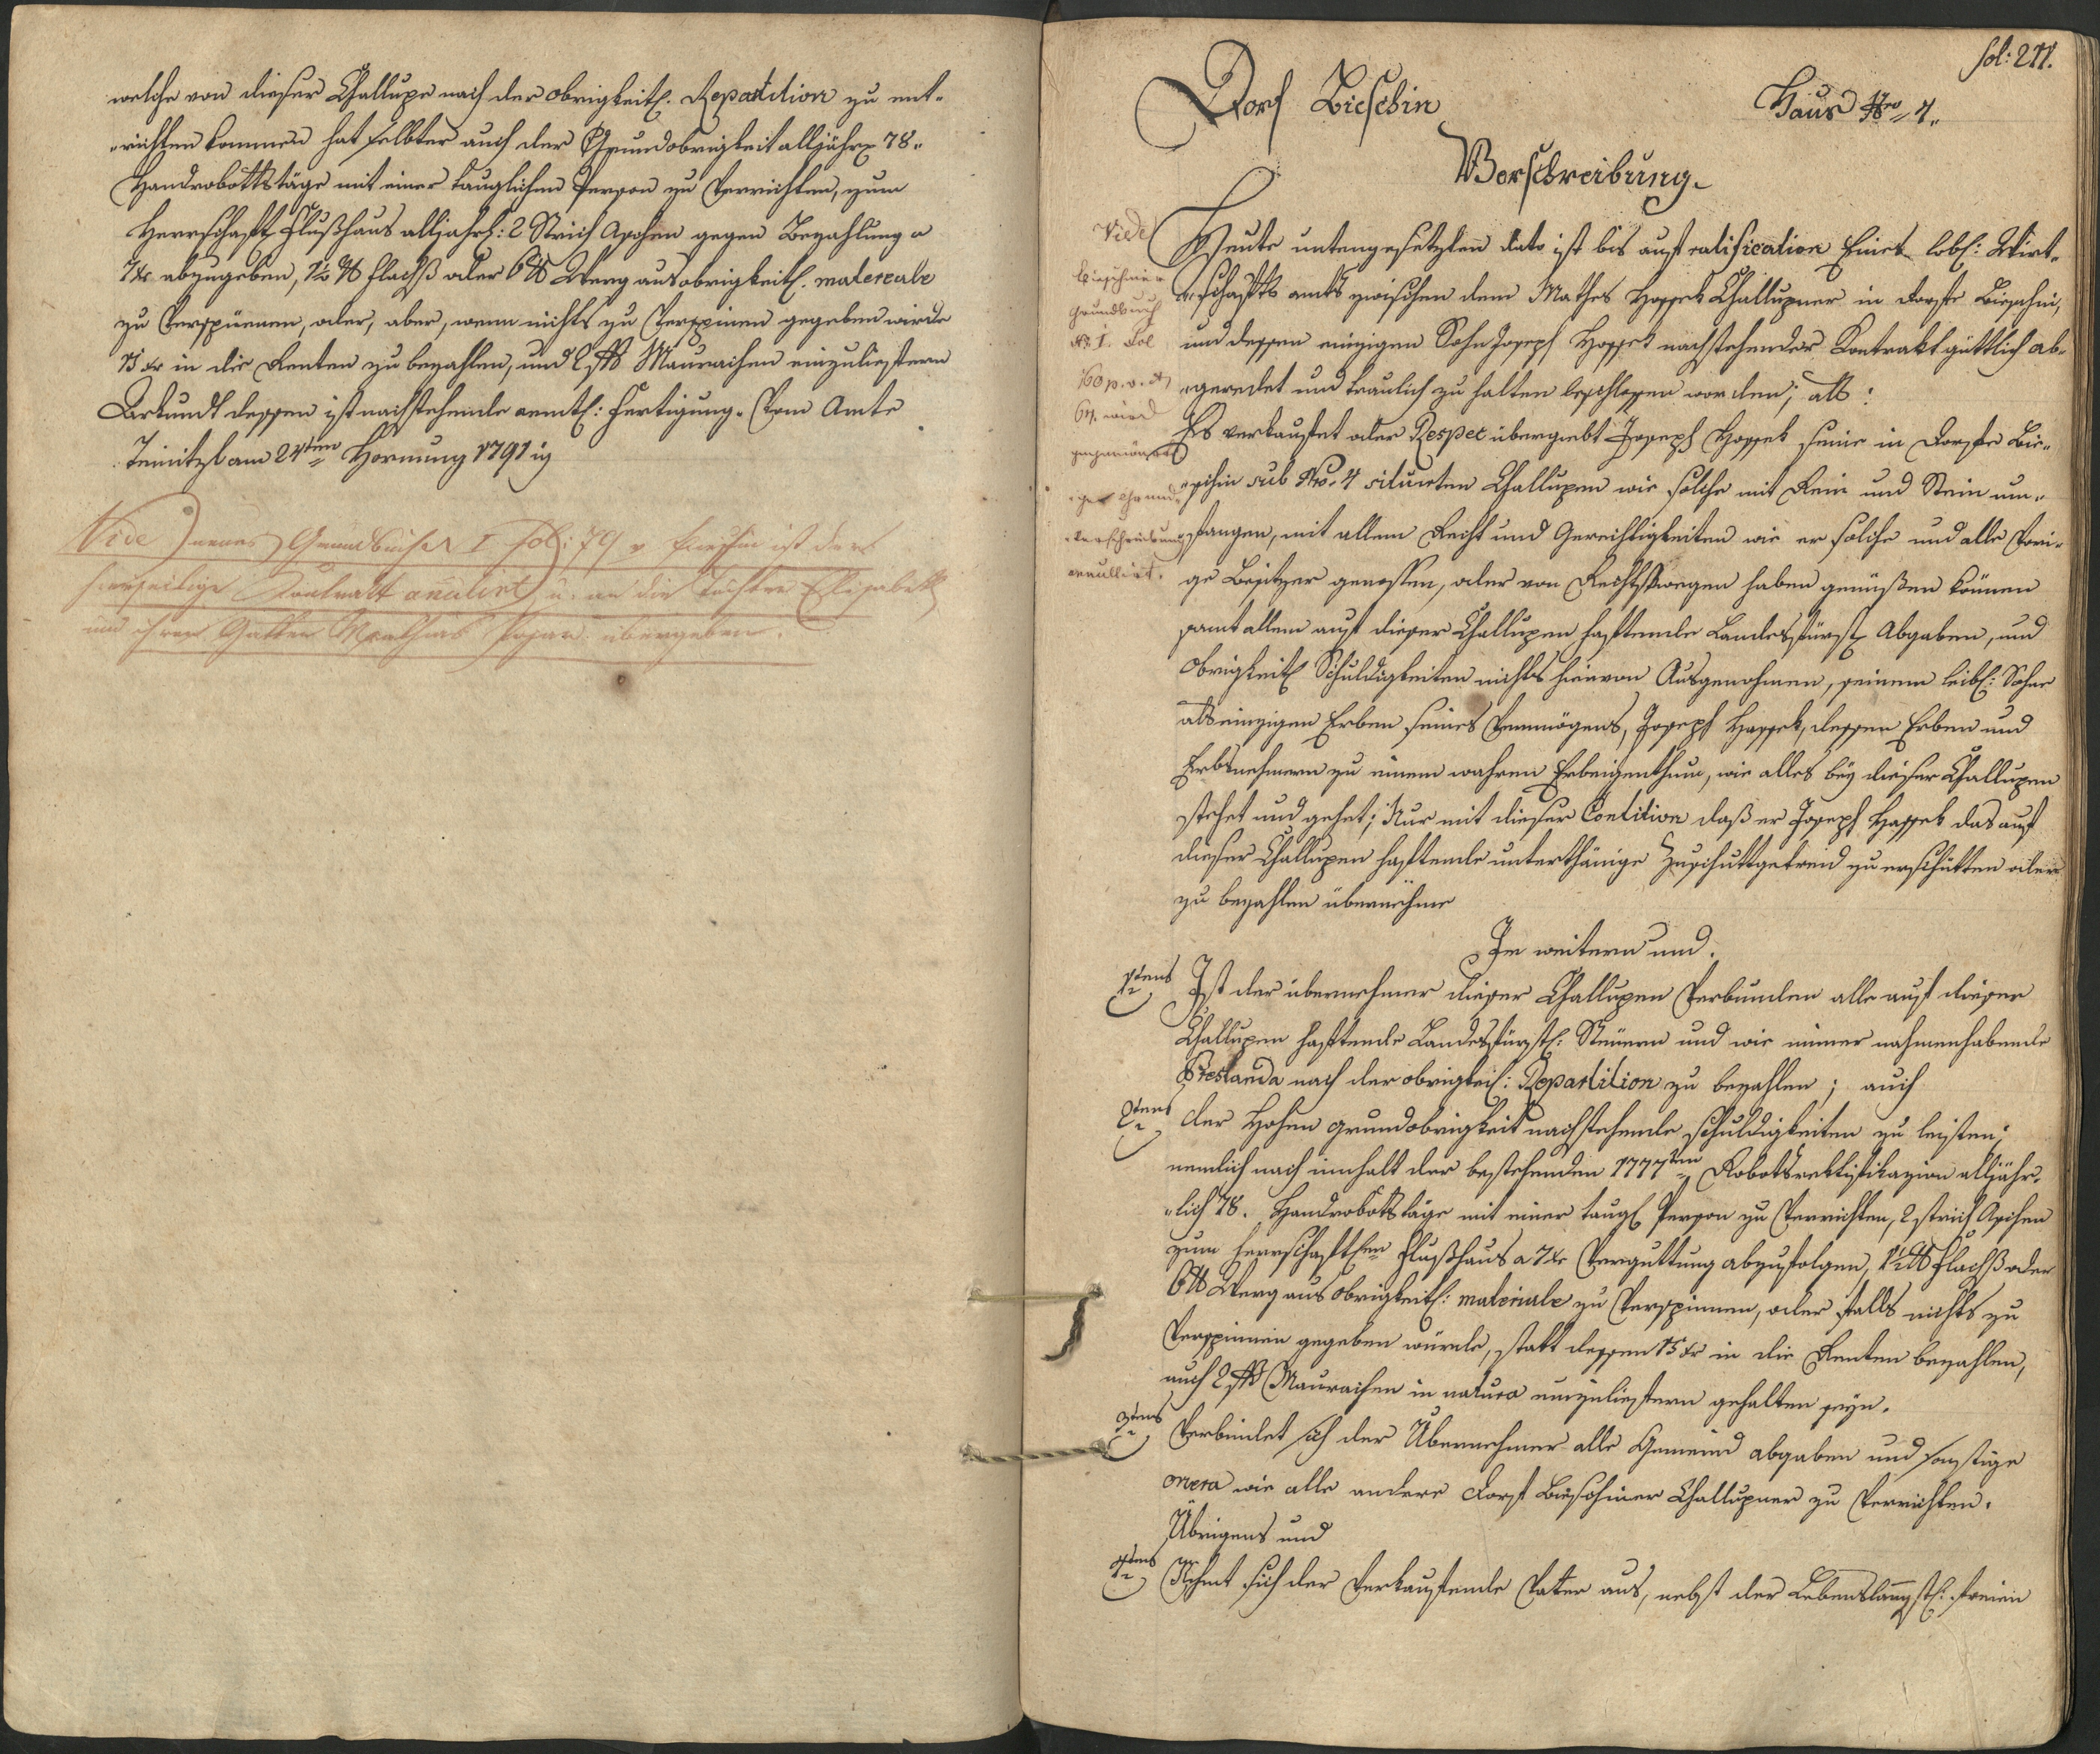 welche von dieser Challupe nach der obrigkeitl. Repartition zu ent-
-richten kommen hat selbter auch der Grundobrigkeit alljährl 78.
Handrobottstäge mit einer tauglichen Person zu verrichten, zum
Herrschaftl Flußhaus alljährl: 2 Strich Aschen gegen Bezahlung a
7 xr abzugeben, 1½ ℔ Flachß oder 6 ℔ Werg aus obrigkeitl. materiale
zu verspünnen, oder, aber, wenn nichts zu verspinnen gegeben wird
15 xr in die Renten zu bezahlen, und 2 Maurachen einzuliefern
Urkundt dessen ist nachstehende amtl: Fertigung. Vom Amte
Teinitzl am 24ten Hornung 1791
Vide neues Grundbuch I fol: 79 v hierin ist der
hierseitige Contrakt anulirt u. an die Tochter Elisabeth
und ihren Gatten Mathias übergeben.
fol: 211.
Dorf Bieschin
Haus Nro 4.
Verschreibung.
Vide
Bieschiner
Grundbuch
No I. Fol
160 p. v. et
61. wird
gegenwärt
-ige Grund
-verschreibung
annullirt.
Heute untengesetzten dato ist bis auf ratification Eines lobl: Wirt-
-schafts amts zwischen dem Mathes Hossek Challupner in Dorfe Bieschin,
und dessen einzigen Sohn Joseph Hossek nachstehender Kontrakt güttlich ab-
-geredet und traulich zu halten beschlossen worden; als:
Es verkaufet oder Respec übergiebt Joseph Hossek seine in Dorfe Bie-
-schin sub Nro. 4 situirten Challupen wie solche mit Rein und Stein um-
-fangen, mit allem Recht und Gerechtigkeiten wie er solche und alle Vori-
ge Besitzer genossen, oder von Rechtswegen haben genüßen können
samt allem auf dieser Challupen haftende Landesfürstl Abgaben, und
Obrigkeitl Schuldigkeiten nichts hievon Ausgenohmen, seinem leibl: Sohne
als einzigen Erben seines Vermögens, Joseph Hossek, dessen Erben und
Erbsnehmern zu einem wahren Erbeigenthum, wie alles bey dieser Challupen
stehet und gehet; Nur mit dieser Contition daß er Joseph Hossek das auf
dieser Challupen haftende unterthänige Zuschuttgetreid zu erschütten oder
zu bezahlen übernehme
Im weitern und.
1tens Ist der übernehmer dieser Challupen Verbunden alle auf dieser
Challupen haftende Landesfürstl: Steuern und wie immer nahmenhabende
Prestanda nach der obrigkeitl: Repartition zu bezahlen; auch
2tens der Hohen grundobrigkeit nachstehende schuldigkeiten zu leisten;
nemlich nach innhalt der bestehenden 1777ten Robotsrektifikazion alljähr-
-lich 78. Handrobottstäge mit einer taugl Person zu Verrichten, 2 strich Aschen
zum herrschaftlen Flußhaus a 7 xr Vergüttung abzufolgen, 1½ ℔ Flachß oder
6 ℔ Werg aus obrigkeitl: materiale zu Verspinnen, oder falls nichts zu
Verspinnen gegeben würde, statt dessen 15 xr in die Renten bezahlen,
auch 2 Maurachen in natura einzuliefern gehalten seyn.
3tens Verbindet sich der Übernehmer alle Gemeind abgaben und sonstige
onera wie alle andere Dorf Bieschiner Challupner zu Verrichten.
Übrigens und
4tens Nehmt sich der Verkaufende Vater aus, nebst der Lebenslängstl: freien